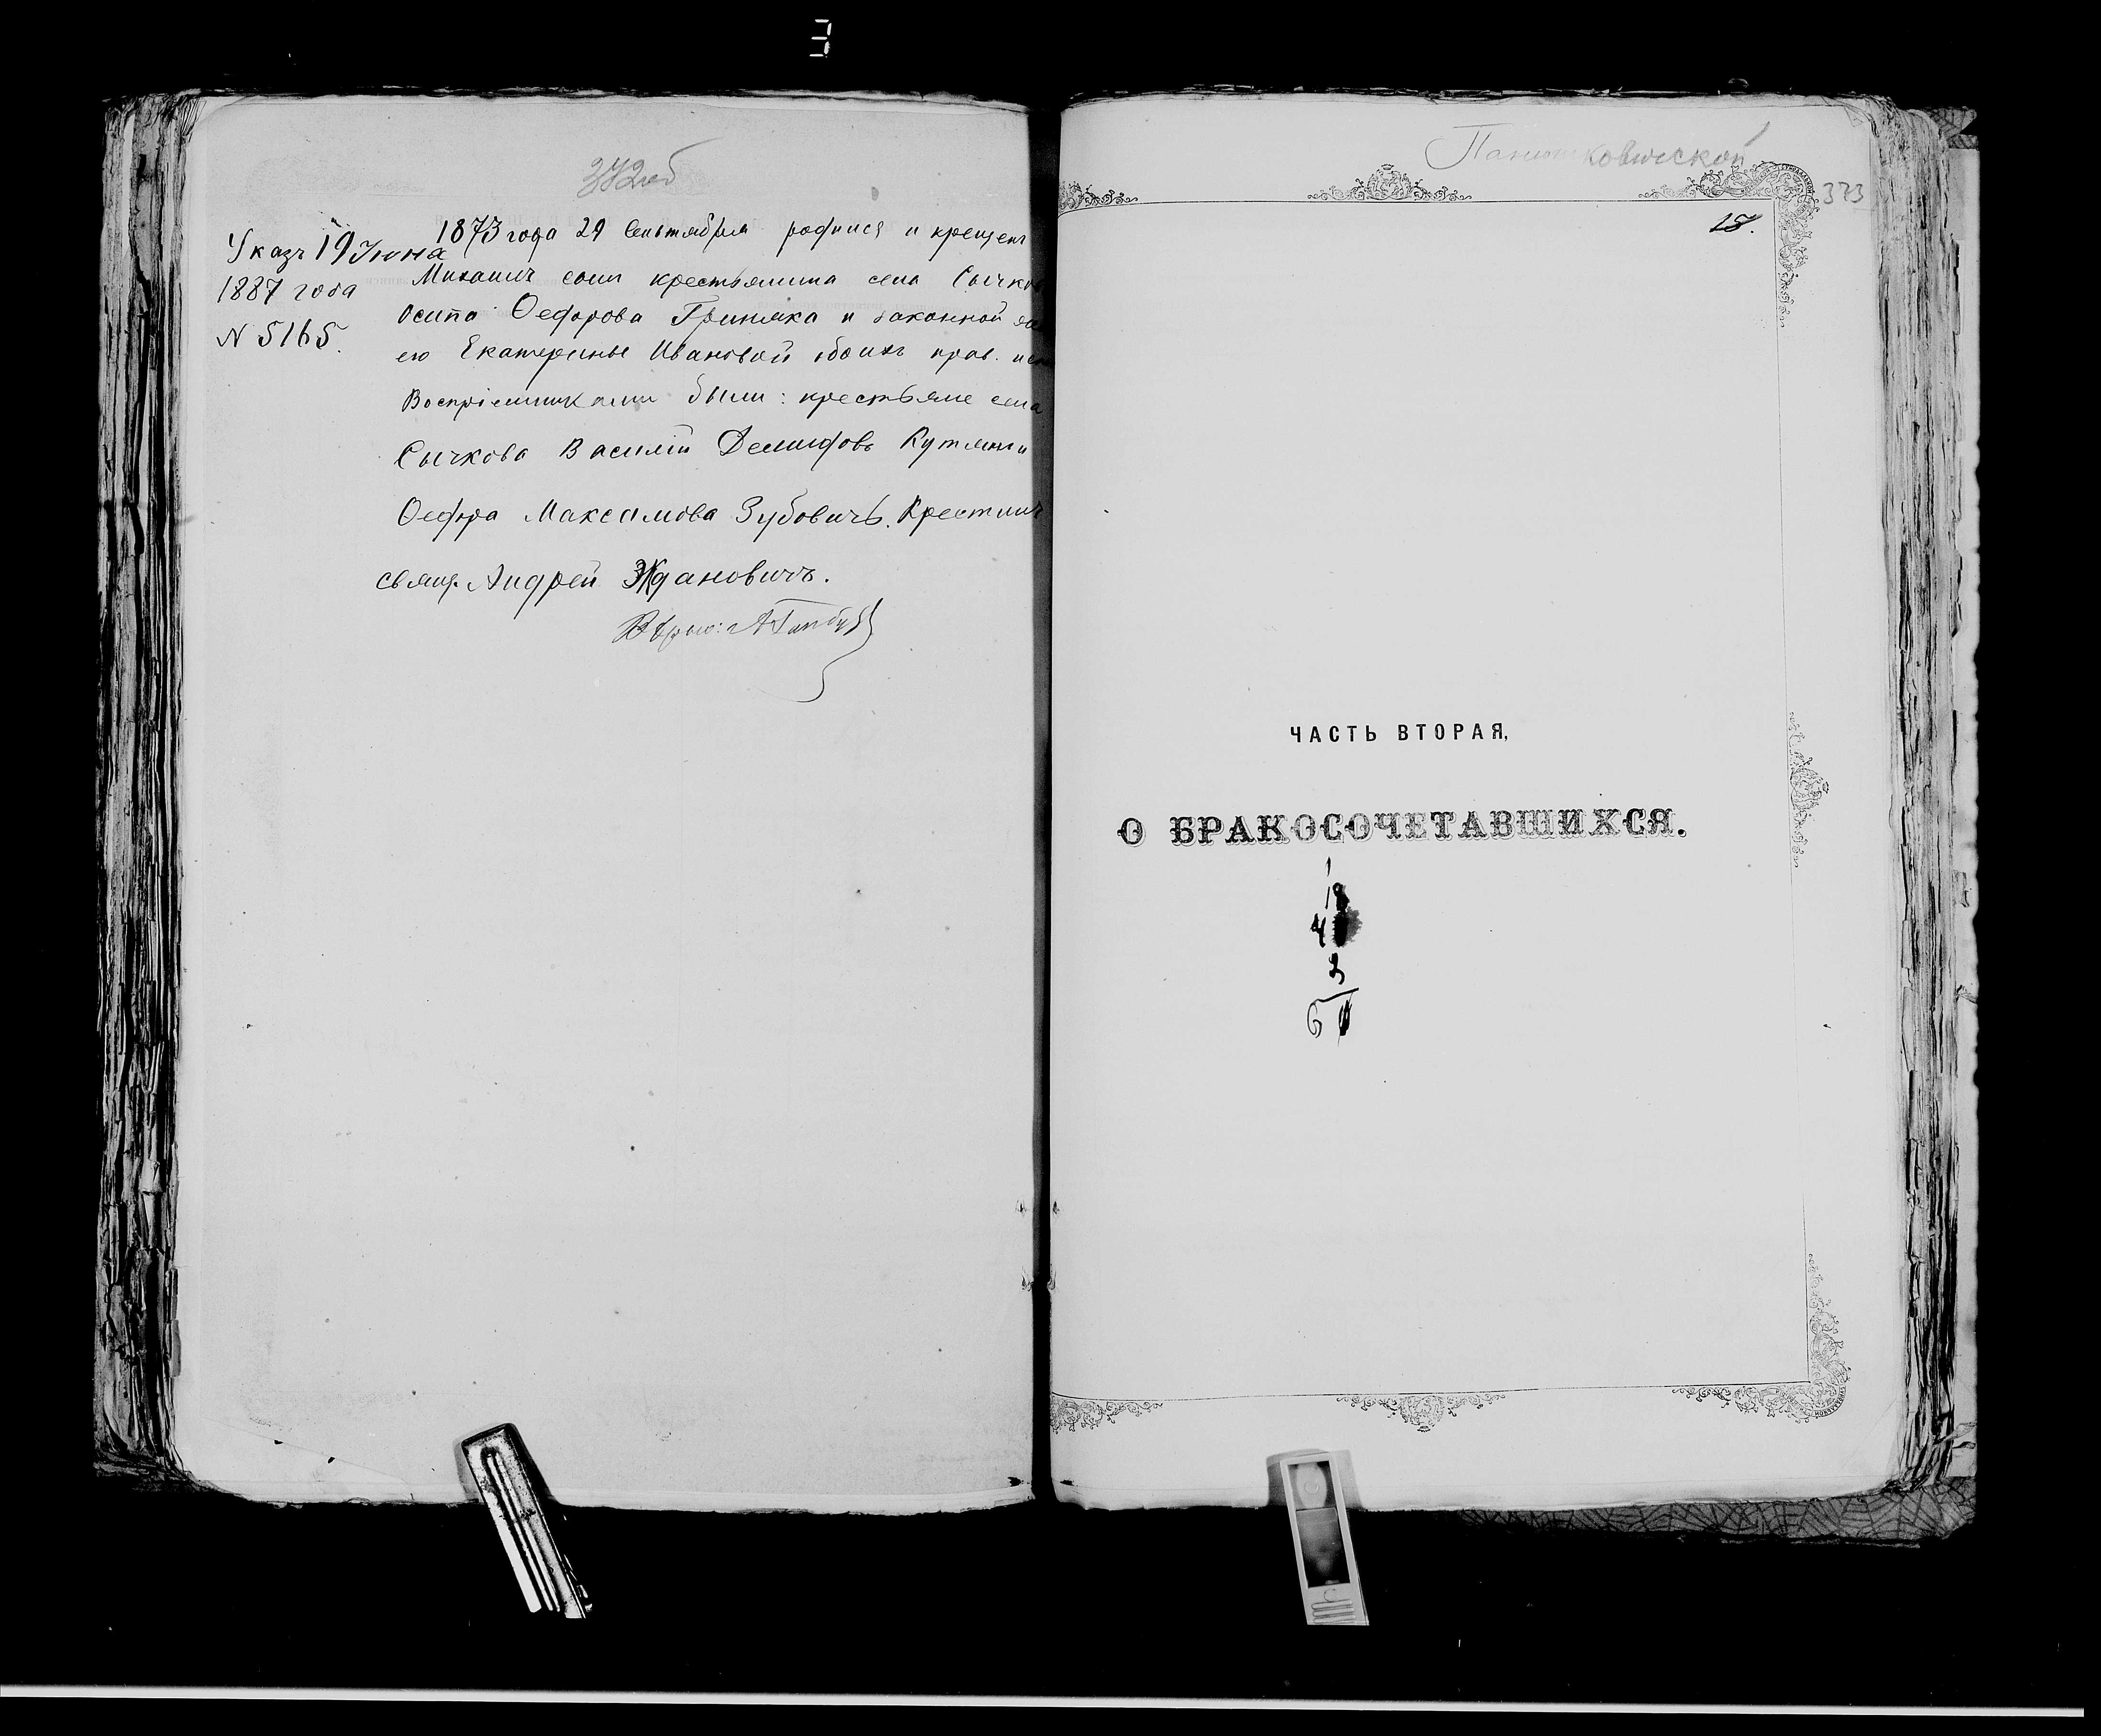 372об
Указъ 19 Июня
1887 года
N 5165.
1873 года 29 Сентября родился и крещенъ
Михаилъ сынъ крестьянина села Сычков
Осипа Ѳедорова Гриняка и законной
его Екатерины Ивановой обоихъ прав.
Воспріемниками были: крестьяне села
Сычкова Василій Демидовъ
Ѳедора Максимова Зубовичъ. Крестилъ
свящ. Андрей Ждановичъ.
Вѣрно:
373
15.
ЧАСТЬ ВТОРАЯ,
О БРАКОСОЧЕТАВШИХСЯ.